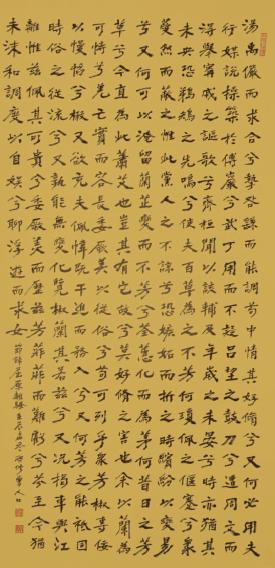 湯禹儼而求合兮摯咎繇而能調苟中情其好脩兮又何必用夫
行媒說操築於傅巖兮武丁用而不疑呂望之鼓刀兮遭周文而
得舉甯戚之謳歌兮齊桓聞以該輔及年歲之未晏兮時亦猶其
未央恐鵜鴂之先鳴兮使夫百草為之不芳何瓊佩之偃蹇兮眾
薆然而蔽之惟此黨人之不諒兮恐嫉妒而折之時繽紛以變易
兮又何可以淹留蘭芷變而不芳兮荃蕙化而為茅何昔日之芳
草兮今直為此蕭艾也豈其有他故兮莫好脩之害也余以蘭為
可恃兮羌無實而容長委厥美以從俗兮苟得列乎眾芳椒專佞
以慢慆兮樧又欲充夫佩幃既干進而務入兮又何芳之能祗固
時俗之從流兮又孰能無變化覽椒蘭其若茲兮又況揭車與江
離惟茲佩其可貴兮委厥美而歷茲芳菲菲而難虧兮芬至今猶
未沬和調度以自娛兮聊浮游而求女 節錄屈原離騷